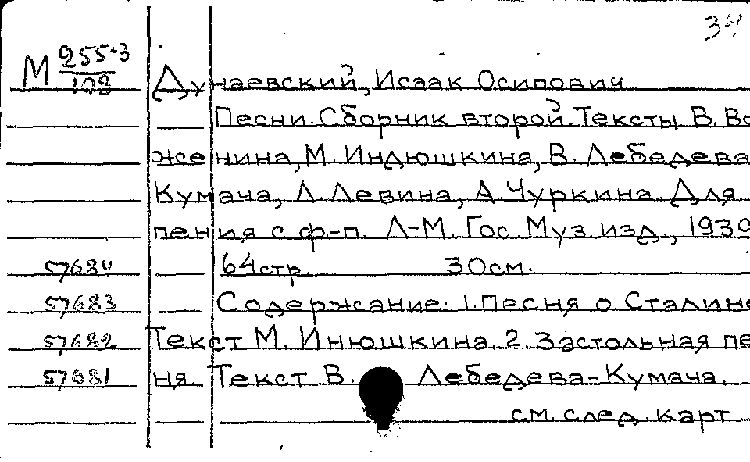 34
М 255-3/108 Дунаевский, Исаак Осипович
Песни. Сборник второй. Тексты В. Во
женина, М. Индюшкина, В. Лебедева
Кумача, Л. Левина, А. Чуркина. Для
пения с ф-п. Л-М. Гос. Муз. изд., 1939
57684 64 стр. 30 см.
57683 Содержание: 1. Песня о Сталине
57682 Текст М. Инюшкина. 2. Застольная пе
57681 ня. Текст В. Лебедева-Кумача.
см. след. карт